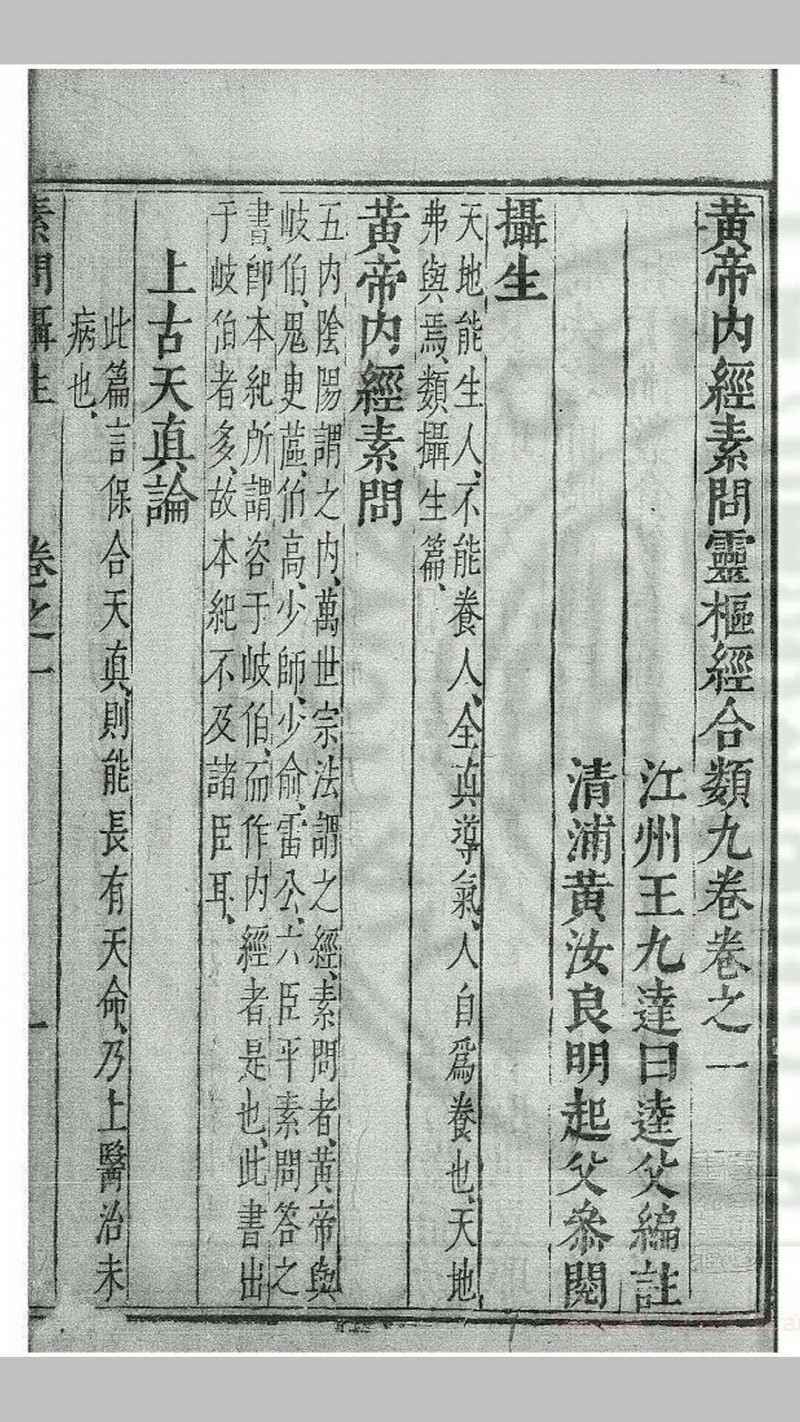 黄帝内經素問靈樞經合類九卷卷之一
江州王九達曰逵父編註
清浦黄汝良明起父叅閱
攝生
天地能生人、不能養人、全真導氣、人自爲養也、天地
弗與焉、類攝生篇、
黄帝内經素問
五内陰陽謂之内、萬世宗法謂之經、素問者、黄帝與
岐伯、鬼臾蓲、伯高、少師、少俞、雷公、六臣平素問答之
書、即本紀所謂咨于岐伯、而作内經者是也、此書出
于岐伯者多、故本紀不及諸臣耳、
上古天真論
此篇言保合天真、則能長有天命、乃上醫治未
病也、
素問攝生 卷之一 一